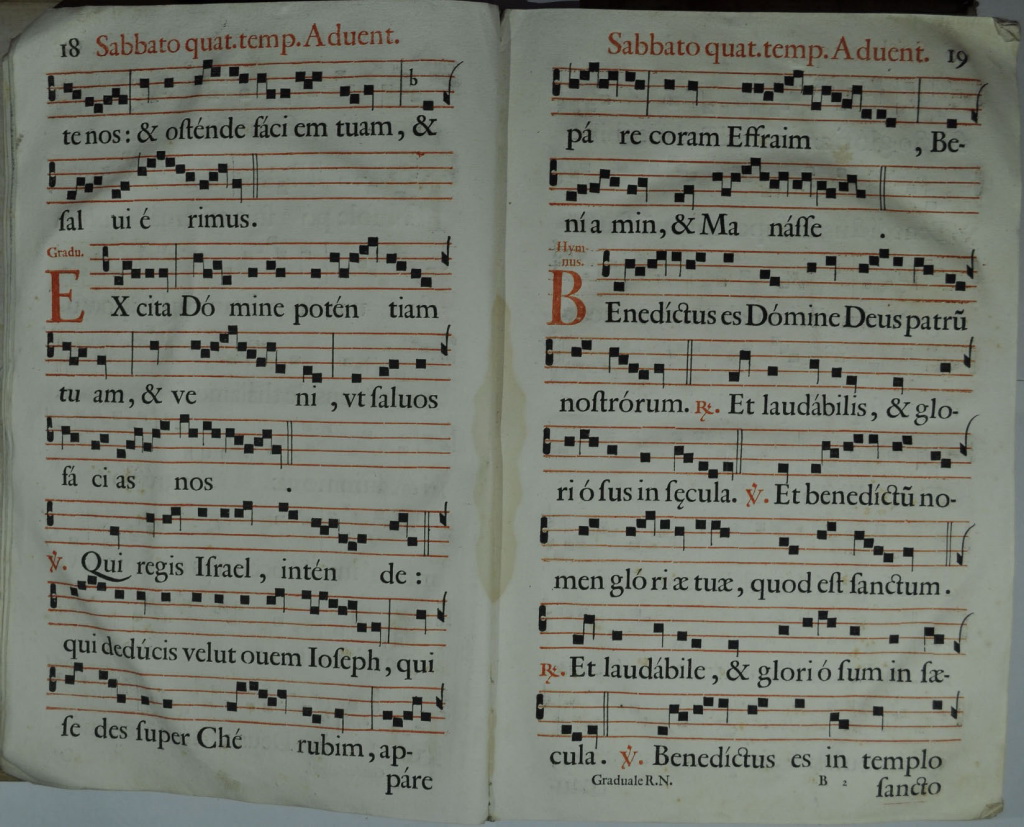 18 Sabbato quat.temp.Aduent.
te nos: & osténde fáci em tuam, &
sal ui é rimus.
Gradu.
EX cita Dó mine potén tiam
tu am, & ve ni , vt saluos
fá ci as nos .
℣. Qui regis Israel, intén de:
qui dedúcis velut ouem Ioseph, qui
se des super Ché rubim, ap-
páre
Sabbato quat.temp.Aduent. 19
pá re coram Effraim , Be-
ní a min, & Ma násse .
Hym-
nus.
BEnedíctus es Dómine Deus patrũ
nostrórum. ℟. Et laudábilis, & glo-
ri ó sus in sęcula. ℣. Et benedíctũ no-
men gló ri æ tuæ, quod est sanctum.
℟. Et laudábile, & glori ó sum in sæ-
cula. ℣. Benedíctus es in templo
Graduale R.N. B 2 sancto